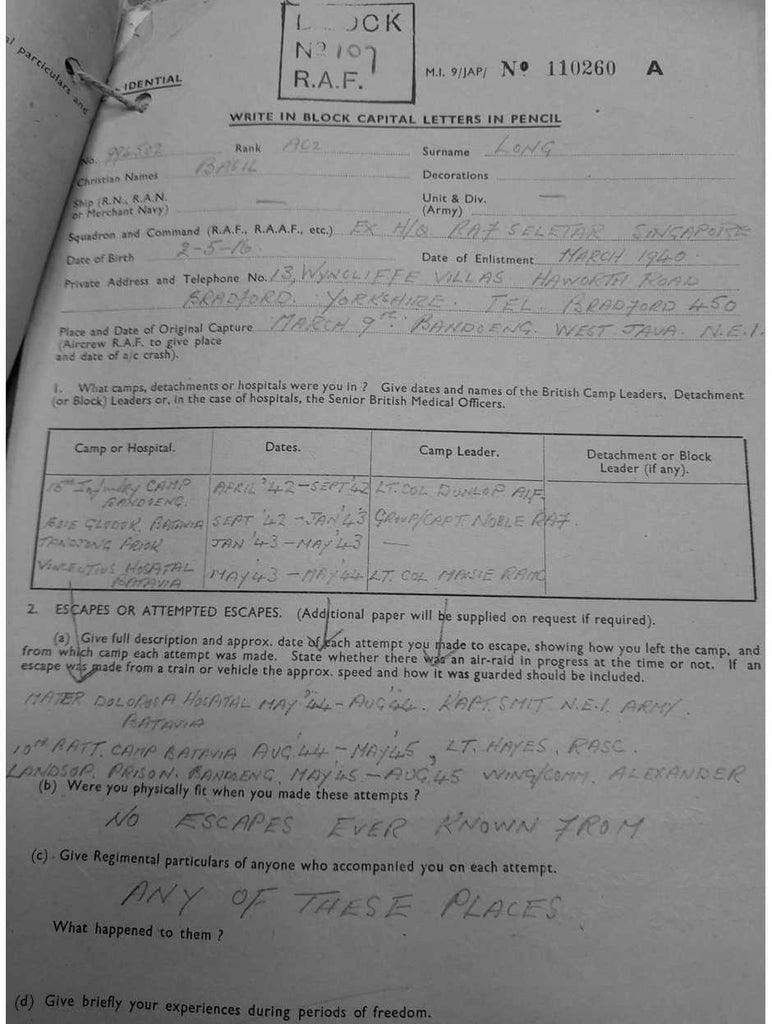 al particulars and
L OCK
Nº 107
R.A.F.
IDENTIAL
M.I. 9/JAP/ Nº 110260 A
WRITE IN BLOCK CAPITAL LETTERS IN PENCIL
No. Rank AC2 Surname LONG
Christian Names BASIL Decorations
Ship (R.N., R.A.N. or Merchant Navy) — Unit & Div. (Army) —
Squadron and Command (R.A.F., R.A.A.F., etc.) EX H/Q RAF SELETAR SINGAPORE
Date of Birth 2-5-16. Date of Enlistment MARCH 1940.
Private Address and Telephone No. 13, WYNCLIFFE VILLAS HAWORTH ROAD
BRADFORD. YORKSHIRE. TEL. BRADFORD 450
Place and Date of Original Capture MARCH 9th. BANDOENG. WEST JAVA. N.E.I.
(Aircrew R.A.F. to give place
and date of a/c crash).
1. What camps, detachments or hospitals were you in ? Give dates and names of the British Camp Leaders, Detachment
(or Block) Leaders or, in the case of hospitals, the Senior British Medical Officers.
Camp or Hospital. Dates. Camp Leader. Detachment or Block Leader (if any).
15th Infantry CAMP BANDOENG. APRIL '42 — SEPT '42 LT. COL DUNLOP AIF.
GLODOK BATAVIA SEPT '42 — JAN '43 GROUP/CAPT. NOBLE RAF.
TANDJONG PRIOK JAN '43 — MAY '43 —
VINCENTIUS HOSPATAL BATAVIA MAY '43 — MAY '44 LT. COL MAISIE RAMC
2. ESCAPES OR ATTEMPTED ESCAPES. (Additional paper will be supplied on request if required).
(a) Give full description and approx. date of each attempt you made to escape, showing how you left the camp, and
from which camp each attempt was made. State whether there was an air-raid in progress at the time or not. If an
escape was made from a train or vehicle the approx. speed and how it was guarded should be included.
MATER DOLOROSA HOSPATAL MAY '44 — AUG '44. KAPT. SMIT N.E.I. ARMY.
BATAVIA
10th BATT. CAMP BATAVIA AUG '44 — MAY '45, LT. HAYES, RASC.
LANDSOP. PRISON. BANDOENG, MAY '45 — AUG. 45 WING/COMM. ALEXANDER
(b) Were you physically fit when you made these attempts ?
NO ESCAPES EVER KNOWN FROM
(c) Give Regimental particulars of anyone who accompanied you on each attempt.
ANY OF THESE PLACES
What happened to them ?
(d) Give briefly your experiences during periods of freedom.